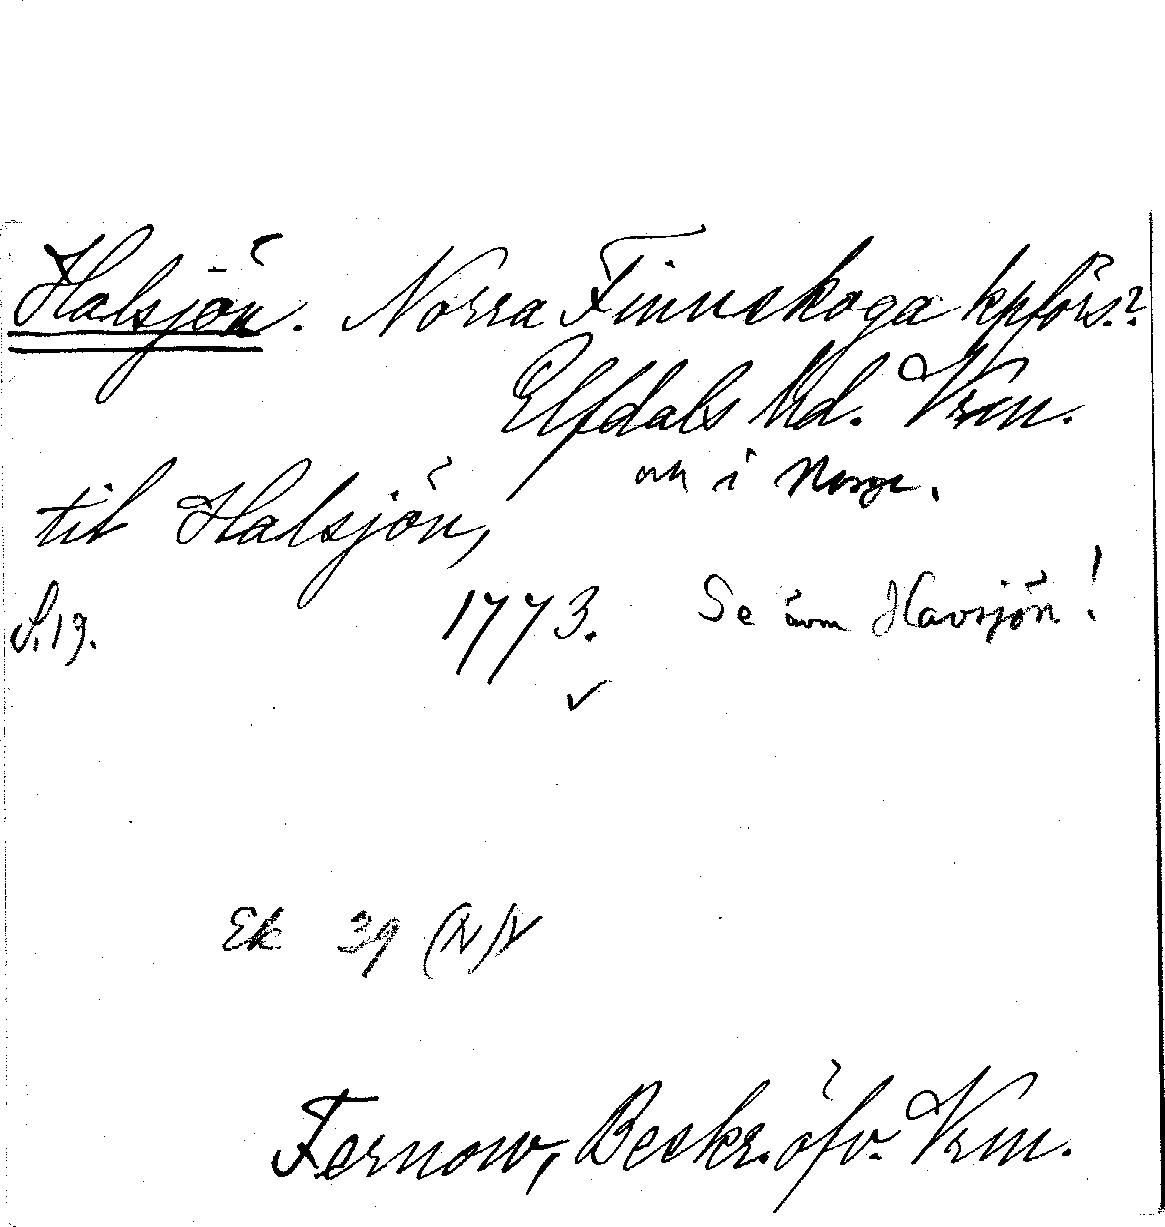 Halsjön. Norra Finnskoga kpförs.?
Elfdals hd. Vrm.
och i Norge.
till Halsjön,
S. 19. 1773. Se även Havsjön!
Ek 39 (N)V
Fernow, Beskr. öfv. Vrm.